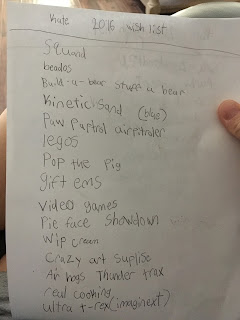 Kate 2016 wish list
Squand
beados
Build-a-bear Stuff a bear
Kinetic Sand (blue)
Paw Partrol airpatroler
legos
Pop the Pig
gift ems
video games
Pie face Showdown
Wip cream
Crazy art suplise
Air hogs Thunder trax
real cooking
ultra t-rex (imaginext)